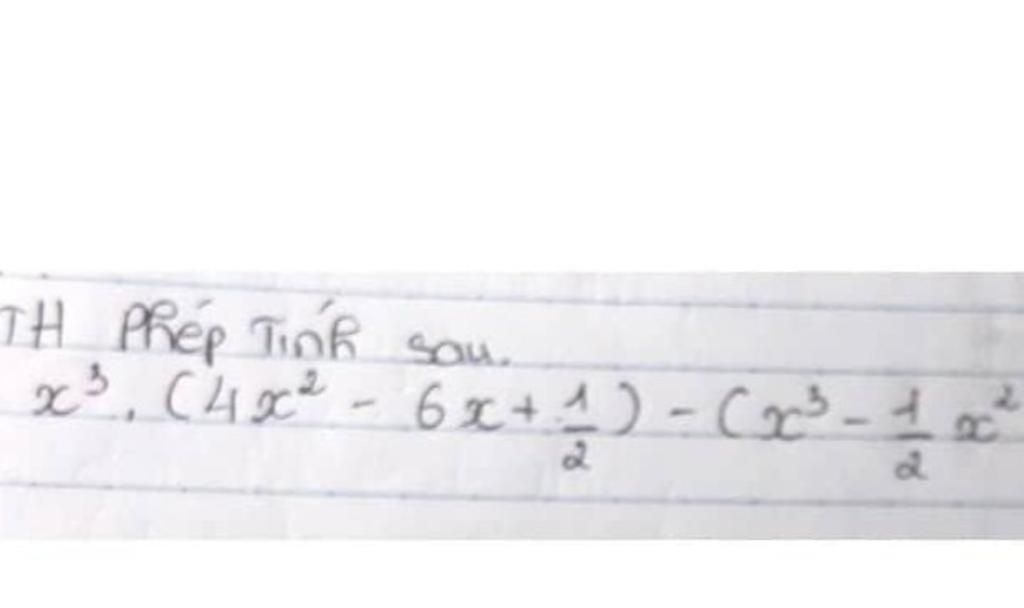 TH Phép Tính sau.
x³. (4x² - 6x + 1/2) - (x³ - 1/2 x²